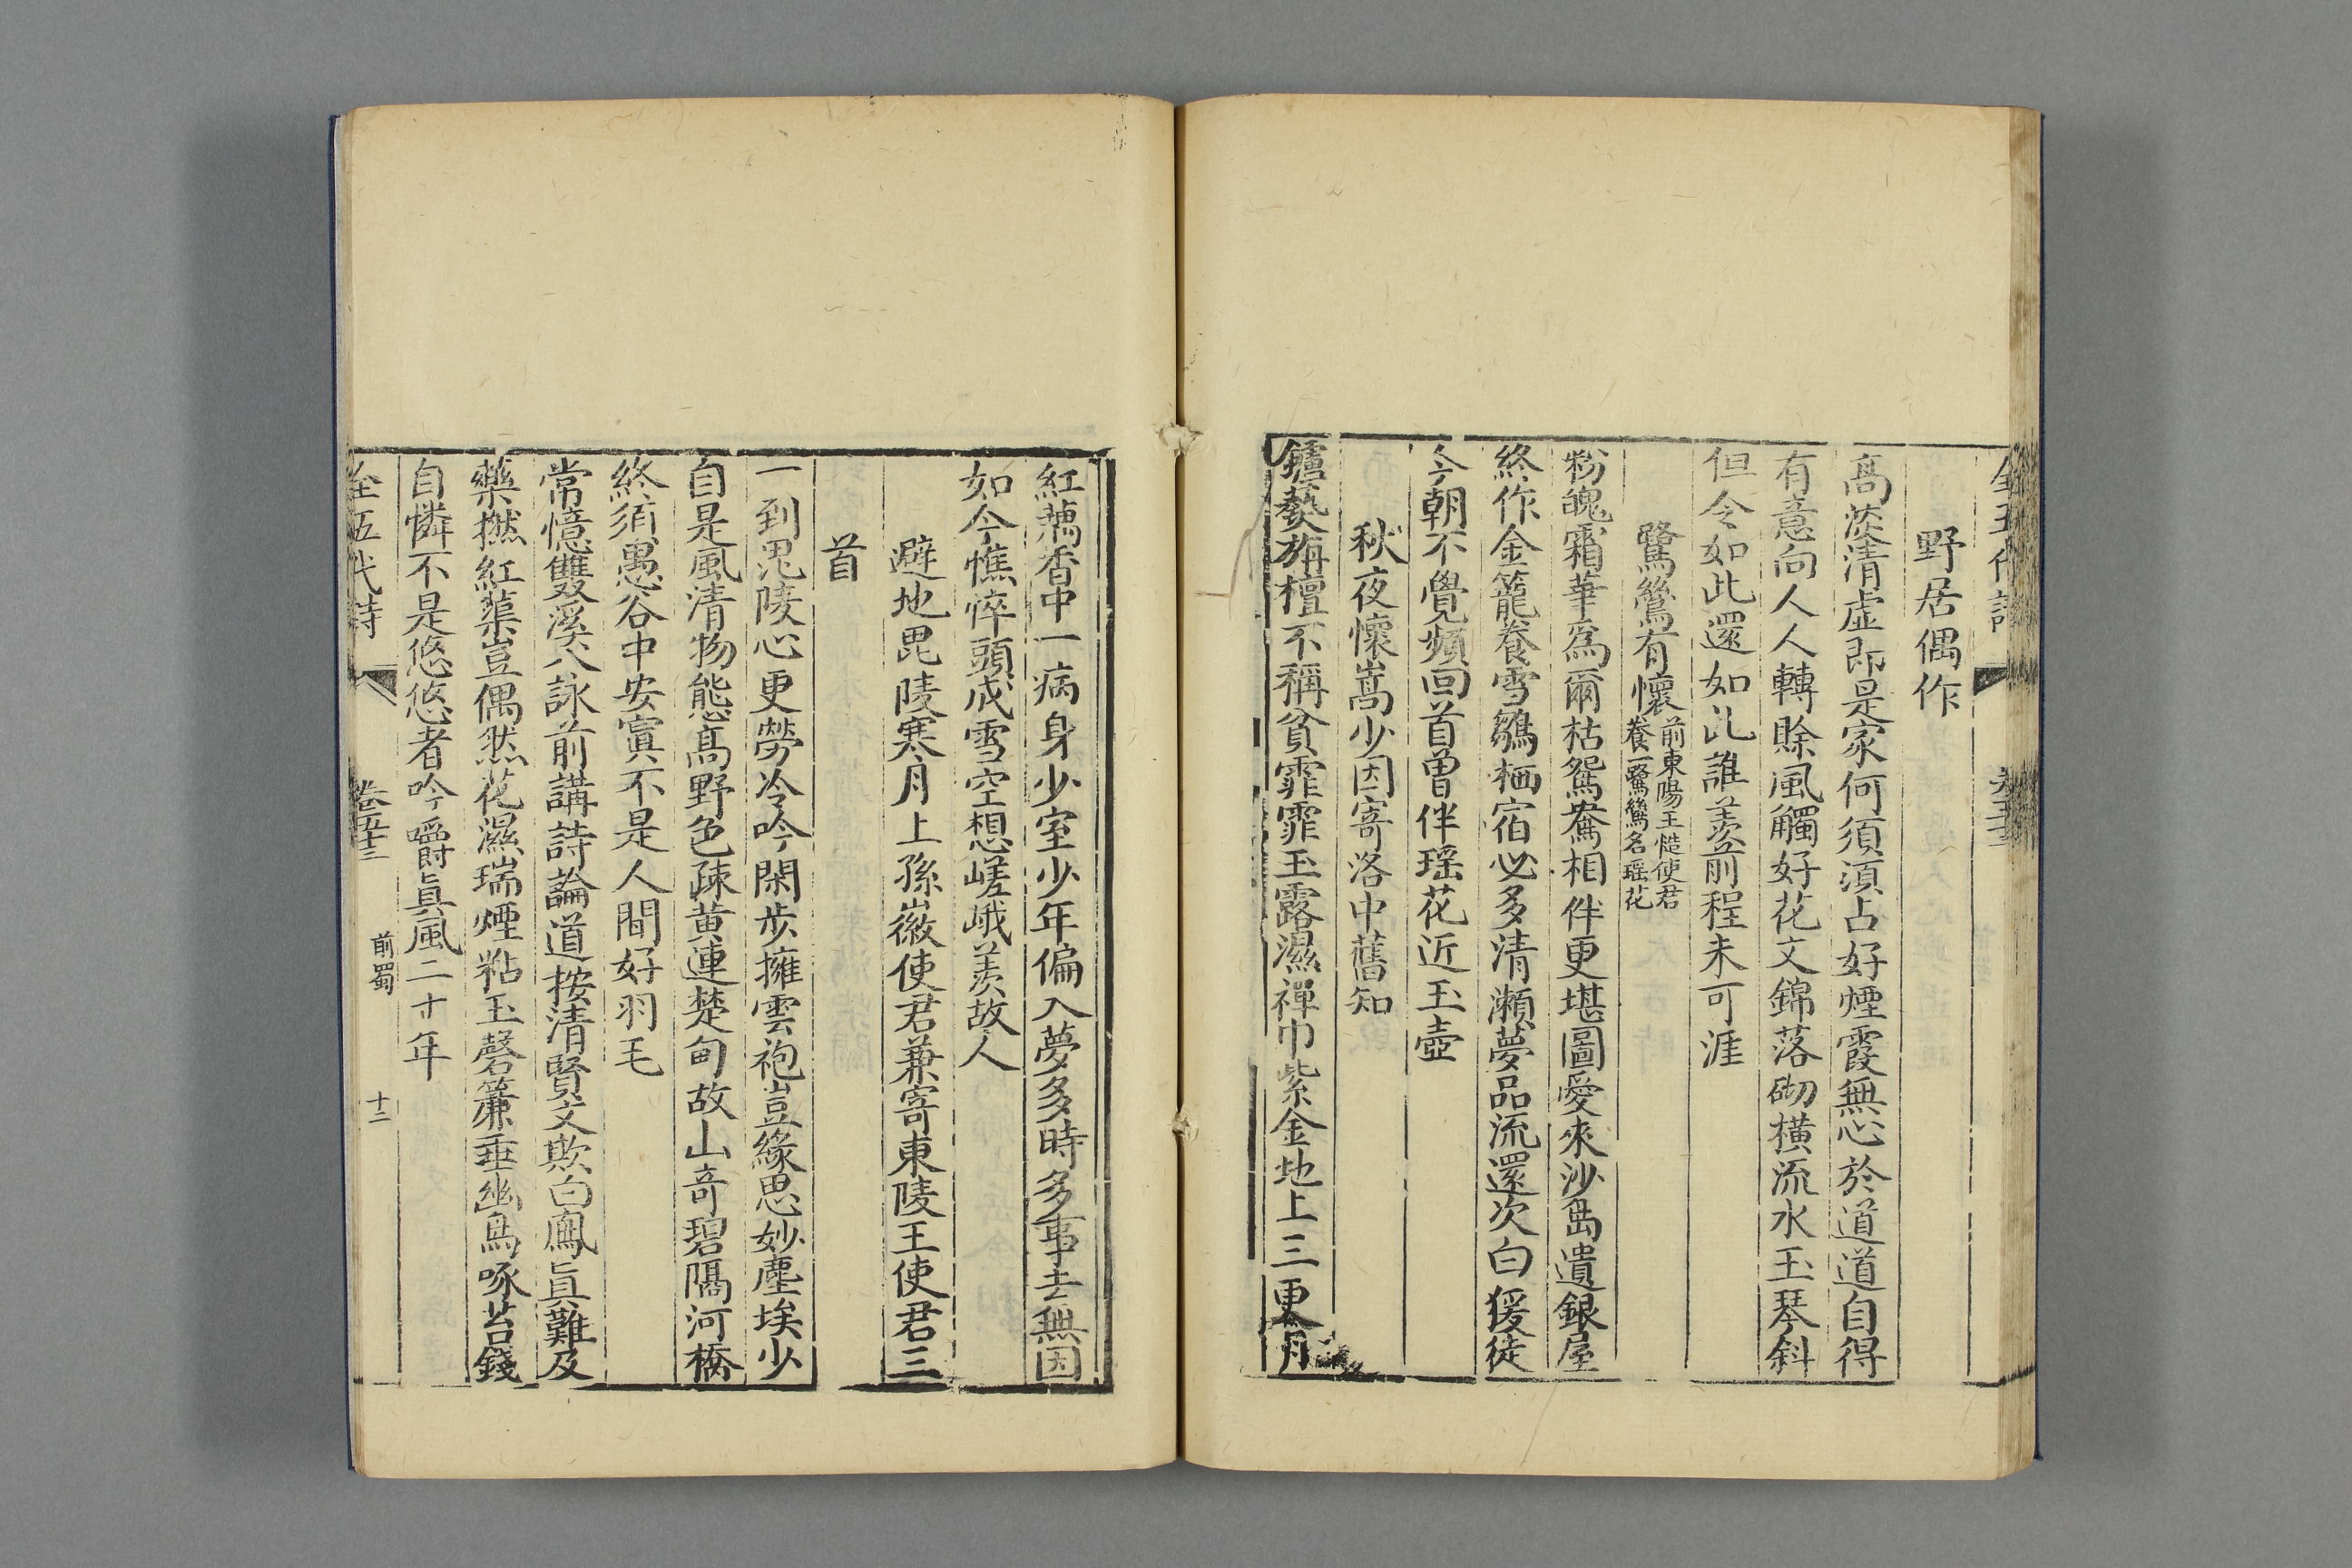 全五代詩
野居偶作
高淡清虛即是家何須須占好煙霞無心於道道自得
有意向人人轉賒風觸好花文錦落砌橫流水玉琴斜
但令如此還如此誰羨前程未可涯
鷺鷥有懷前東陽王慥使君養一鷺鷥名瑶花
粉魄霜華為爾枯鴛鴦相伴更堪圖愛來沙島遺銀屋
終作金籠養雪鶵栖宿必多清瀬夢品流還次白猨徒
今朝不覺頻回首曾伴瑶花近玉壺
秋夜懷嵩少因寄洛中舊知
鑪爇旃檀不稱貧霏霏玉露濕禪巾紫金地上三更月
紅藕香中一病身少室少年偏入夢多時多事去無因
如今憔悴頭成雪空想嵯峨羨故人
避地毘陵寒月上孫徽使君兼寄東陵王使君三
首
一到毘陵心更勞冷吟閑步擁雲袍豈緣思妙塵埃少
自是風清物態高野色疎黃連楚甸故山竒碧隔河橋
終須愚谷中安寘不是人間好羽毛
常憶雙溪八詠前講詩論道按清賢文欺白鳳真難及
藥撚紅蕖豈偶然花濕瑞煙粘玉磬簾垂幽鳥啄苔錢
自憐不是悠悠者吟嚼真風二十年
全五代詩 卷五十三 前蜀 十二